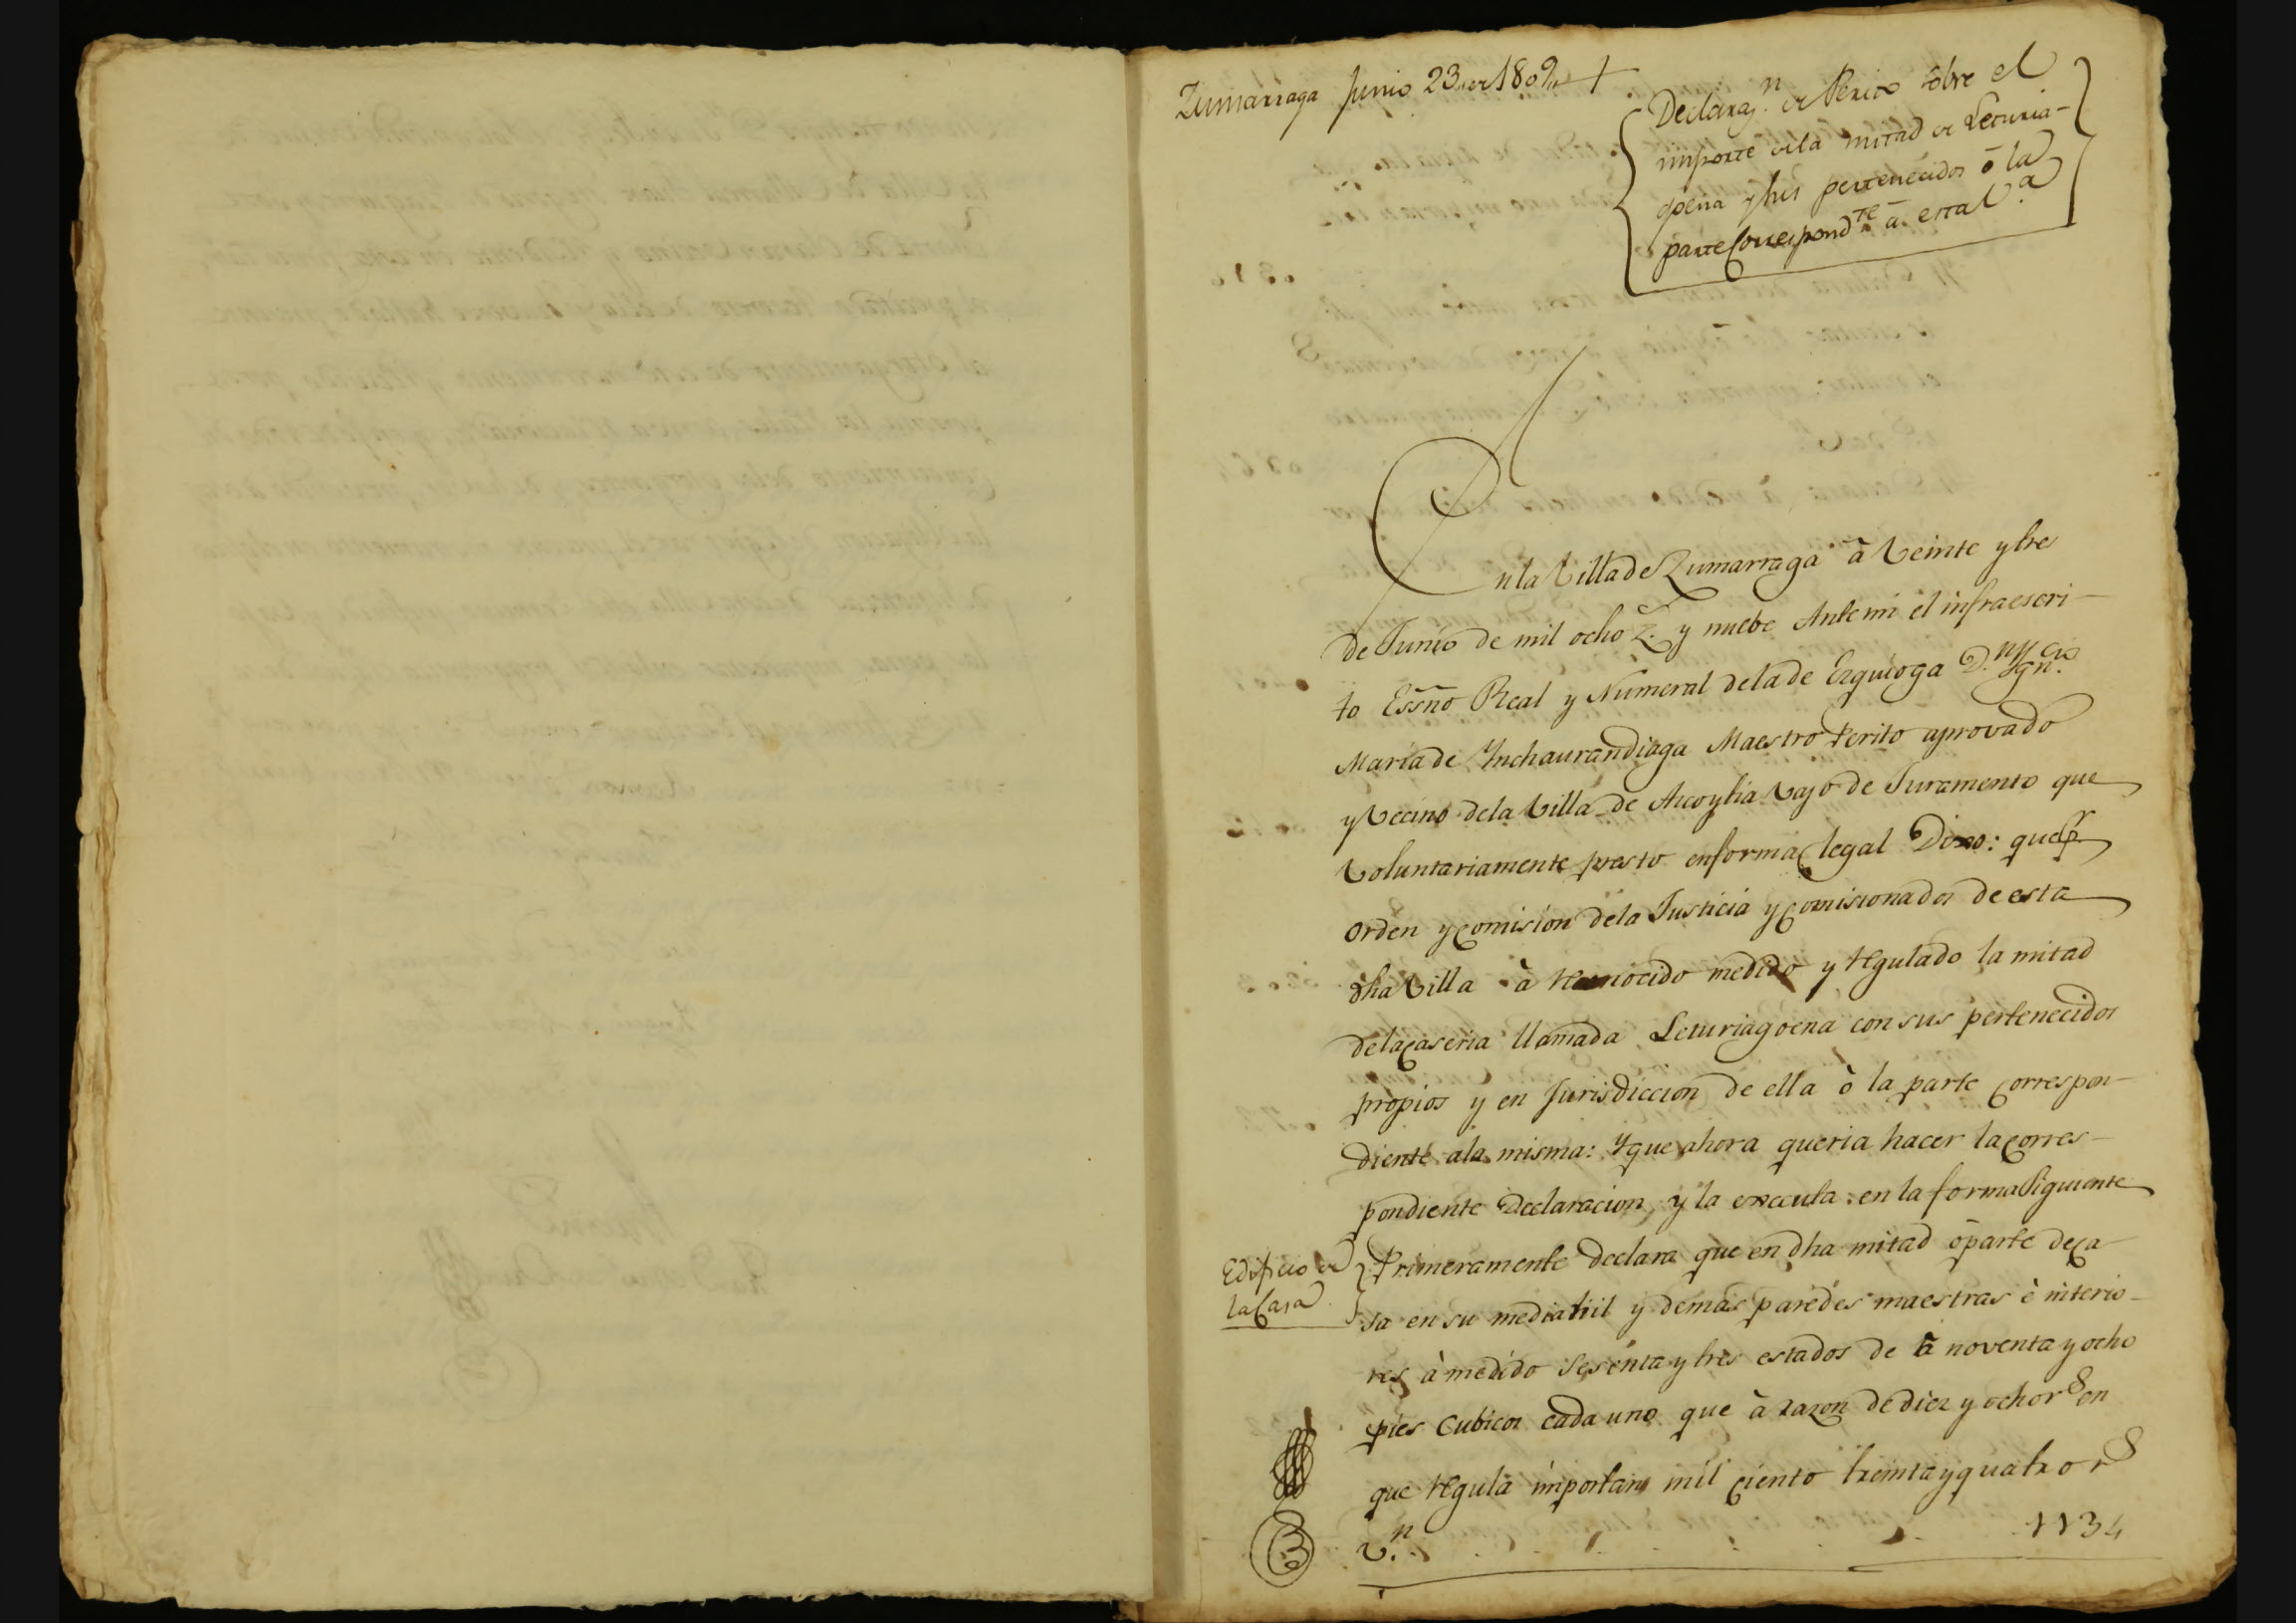 Zumarraga Junio 23,, de 1809,, +
Declaraz.n de Perito sobre el
importe de la mitad de Leturia-
goena y sus pertenecidos ō la
parte Correspond.te ā. esta V.a
En la Villa de Zumarraga ā Veinte y tres
de Junio de mil ocho z.s y nuebe Ante mi el infraescri-
to Essno Real y Numeral dela de Ezquioga D.n Ygn.cio
Maria de Ynchaurandiaga Maestro Perito aprovado
y Vecino dela Villa de Azcoytia Vajo de Juramento que
Voluntariamente presto en forma legal Dixo: que pr.
orden y comision dela Justicia y comisionados de esta
dha Villa à reconocido medido y regulado la mitad
dela caseria llamada Leturiagoena con sus pertenecidos
propios y en Jurisdiccion de ella ò la parte correspon-
diente ala misma: Y que ahora queria hacer la corres-
pondiente Declaracion, y la executa en la forma Siguiente
Edificio de
la Casa
Primeramente declara que en dha mitad ō parte de ca-
sa en su mediatiil y demas paredes maestras è interio-
res à medido Sesenta y tres estados de ā noventa y ocho
pies Cubicos cada uno que à razon de diez y ocho r.s en
que regula importan mil ciento treinta y quatro r.s
v.n . . . . . . . 1134